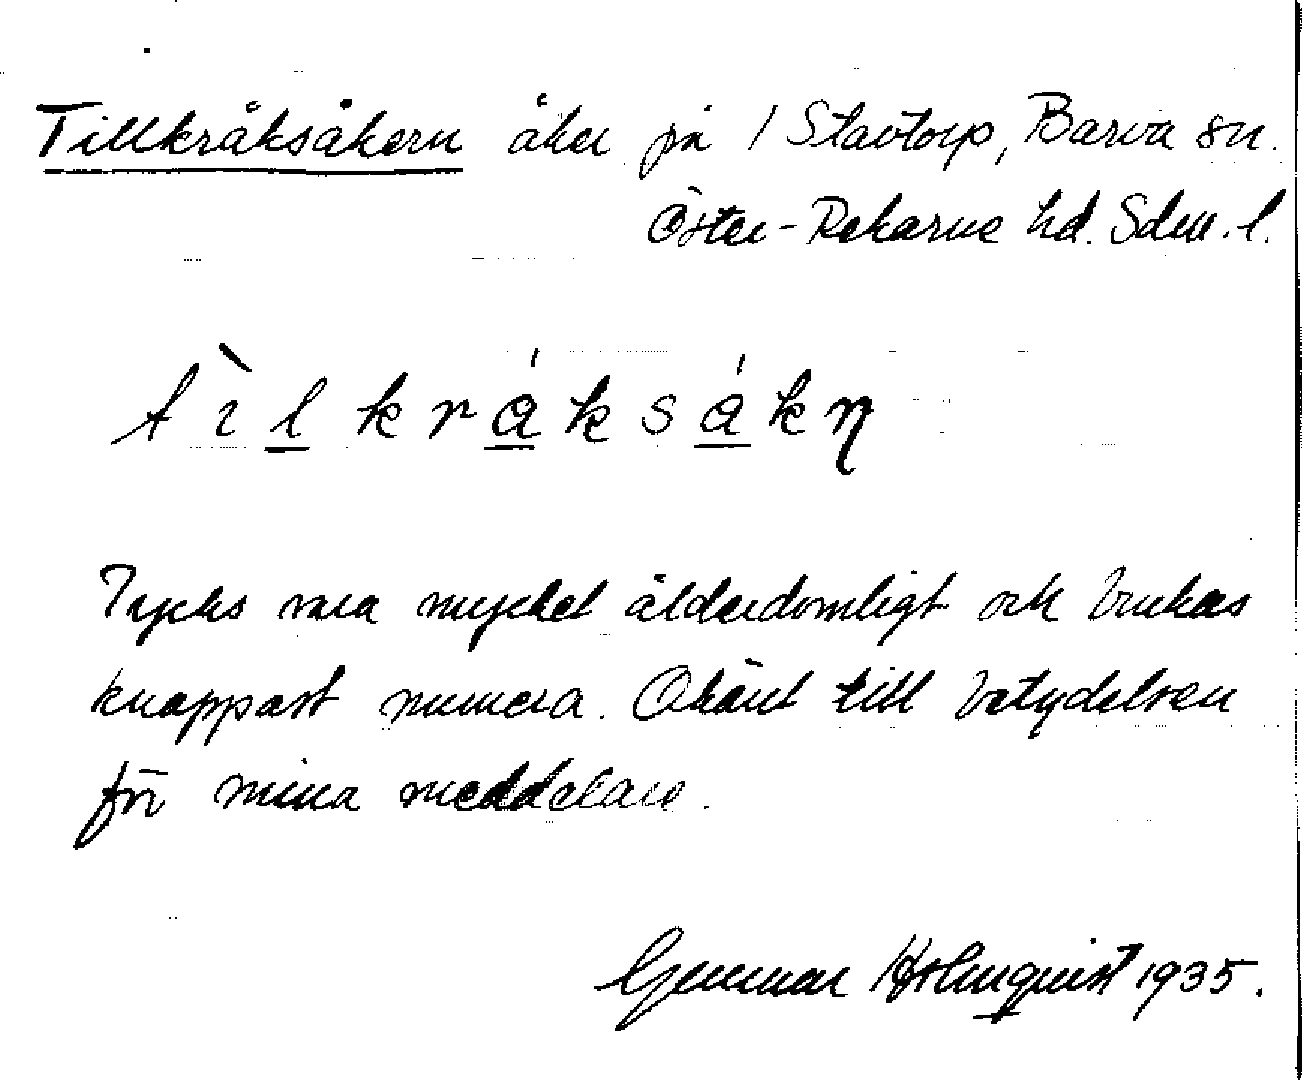 Tillkråksåkern åker på 1 Stavtorp, Barva sn.
Öster-Rekarne hd. Sdm. l.
tìlkråksåkn̥
Tycks vara mycket ålderdomligt och brukas
knappast numera. Okänt till betydelsen
för mina meddelare.
Gunnar Holmquist 1935.